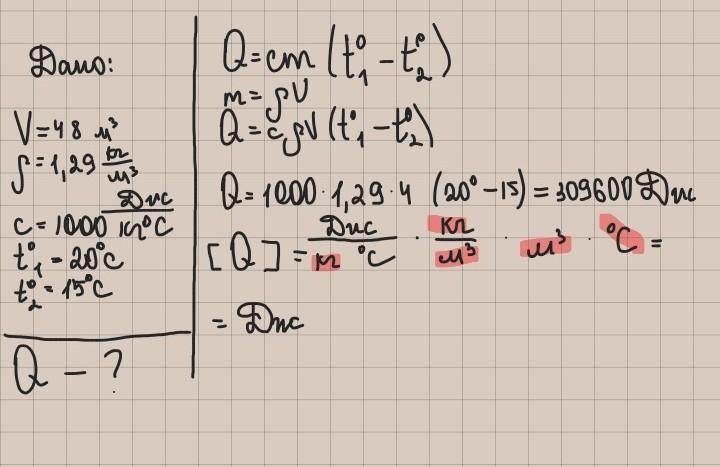 Дано:
V = 48 м³
ρ = 1,29 кг/м³
c = 1000 Дж/кг°C
t°₁ = 20°C
t°₂ = 15°C
Q - ?
Q = cm (t°₁ - t°₂)
m = ρV
Q = cρV (t°₁ - t°₂)
Q = 1000 · 1,29 · 4 (20° - 15) = 309600 Дж
[Q] = Дж/кг °C · кг/м³ · м³ · °C =
= Дж